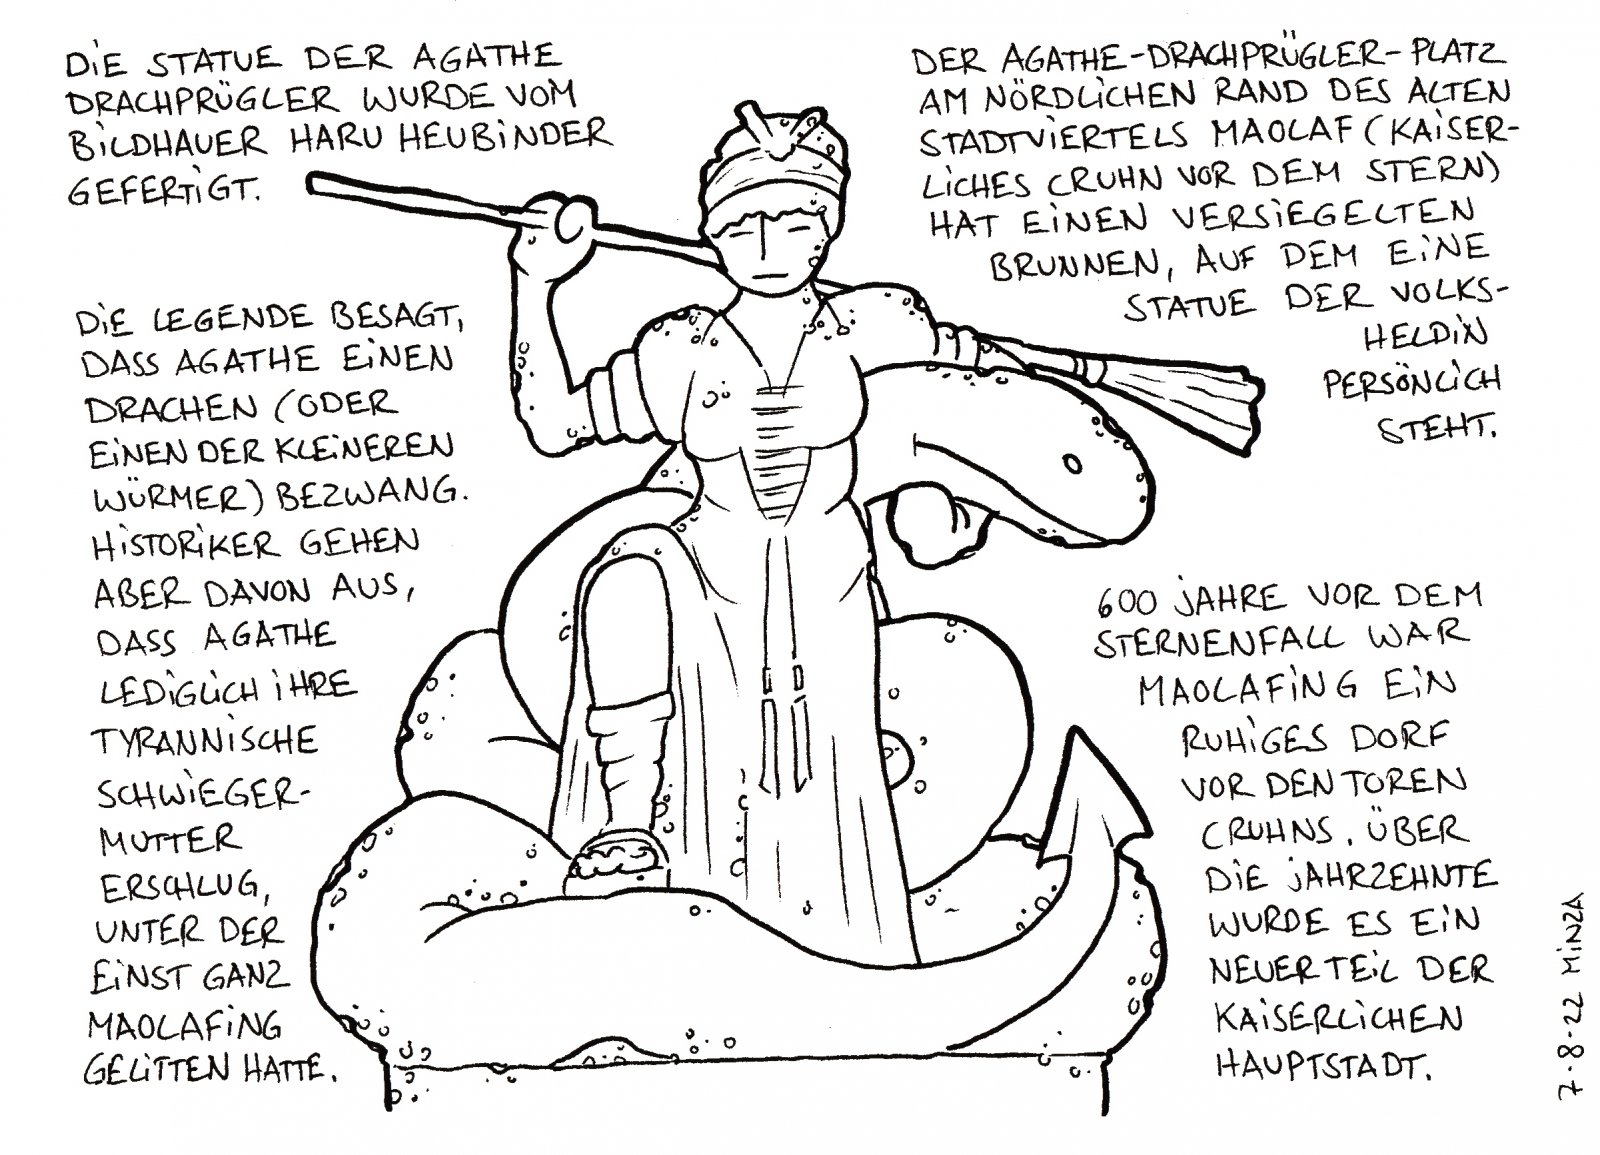 DIE STATUE DER AGATHE
DRACHPRÜGLER WURDE VOM
BILDHAUER HARU HEUBINDER
GEFERTIGT.
DER AGATHE-DRACHPRÜGLER-PLATZ
AM NÖRDLICHEN RAND DES ALTEN
STADTVIERTELS MAOLAF (KAISER-
LICHES CRUHN VOR DEM STERN)
HAT EINEN VERSIEGELTEN
BRUNNEN, AUF DEM EINE
STATUE DER VOLKS-
HELDIN
PERSÖNLICH
STEHT.
DIE LEGENDE BESAGT,
DASS AGATHE EINEN
DRACHEN (ODER
EINEN DER KLEINEREN
WÜRMER) BEZWANG.
HISTORIKER GEHEN
ABER DAVON AUS,
DASS AGATHE
LEDIGLICH IHRE
TYRANNISCHE
SCHWIEGER-
MUTTER
ERSCHLUG,
UNTER DER
EINST GANZ
MAOLAFING
GELITTEN HATTE.
600 JAHRE VOR DEM
STERNENFALL WAR
MAOLAFING EIN
RUHIGES DORF
VOR DEN TOREN
CRUHNS. ÜBER
DIE JAHRZEHNTE
WURDE ES EIN
NEUER TEIL DER
KAISERLICHEN
HAUPTSTADT.
7-8-22 MINZA